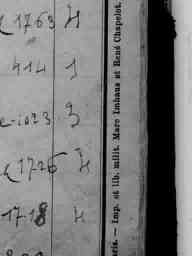 1763 4
414 1
1023 3
1726 4
1718 4
ris. — Imp. et lib. milit. Marc Imhaus et René Chapelot.